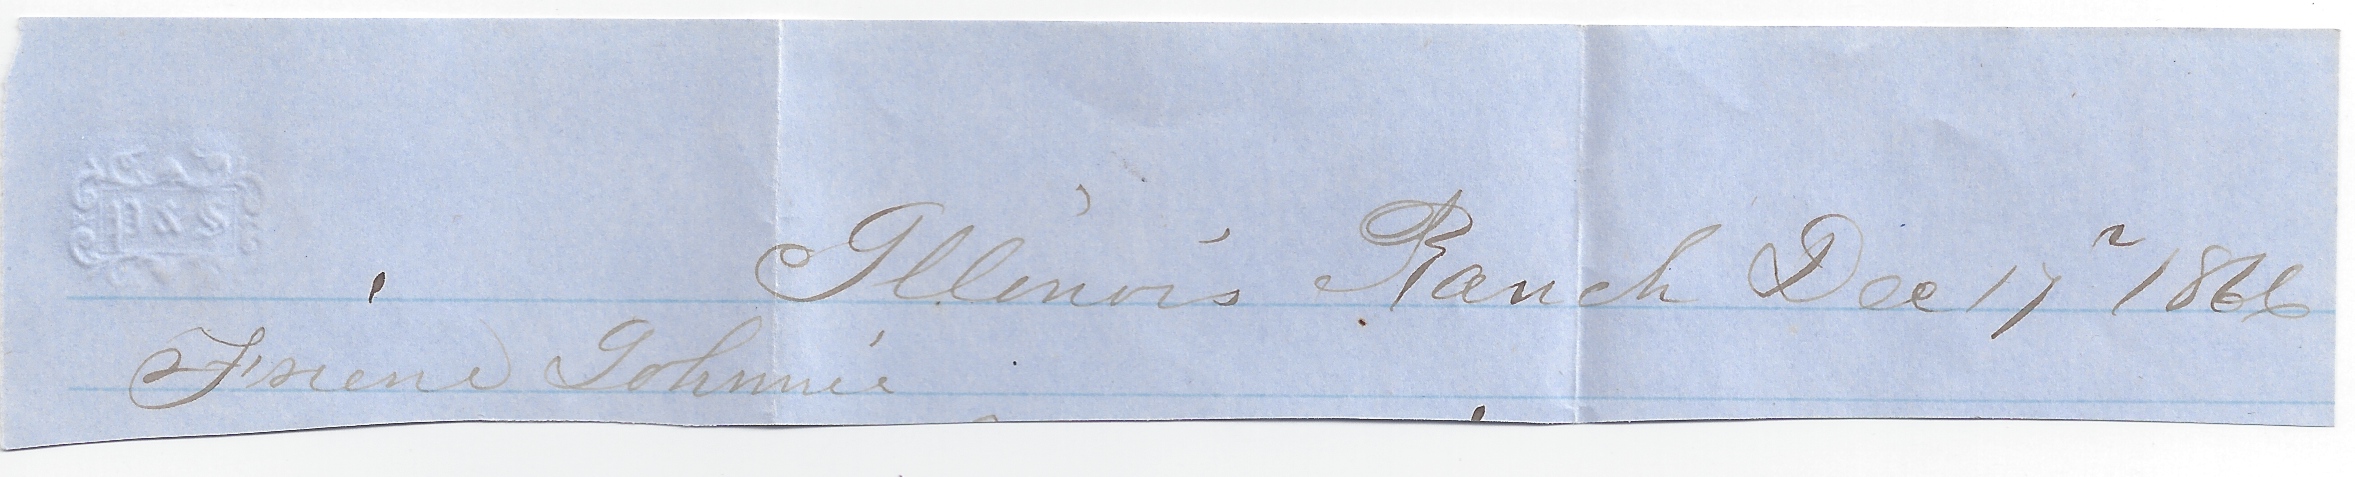 P & S
Illinois Ranch Dec 17 1866
Friend Johnnie